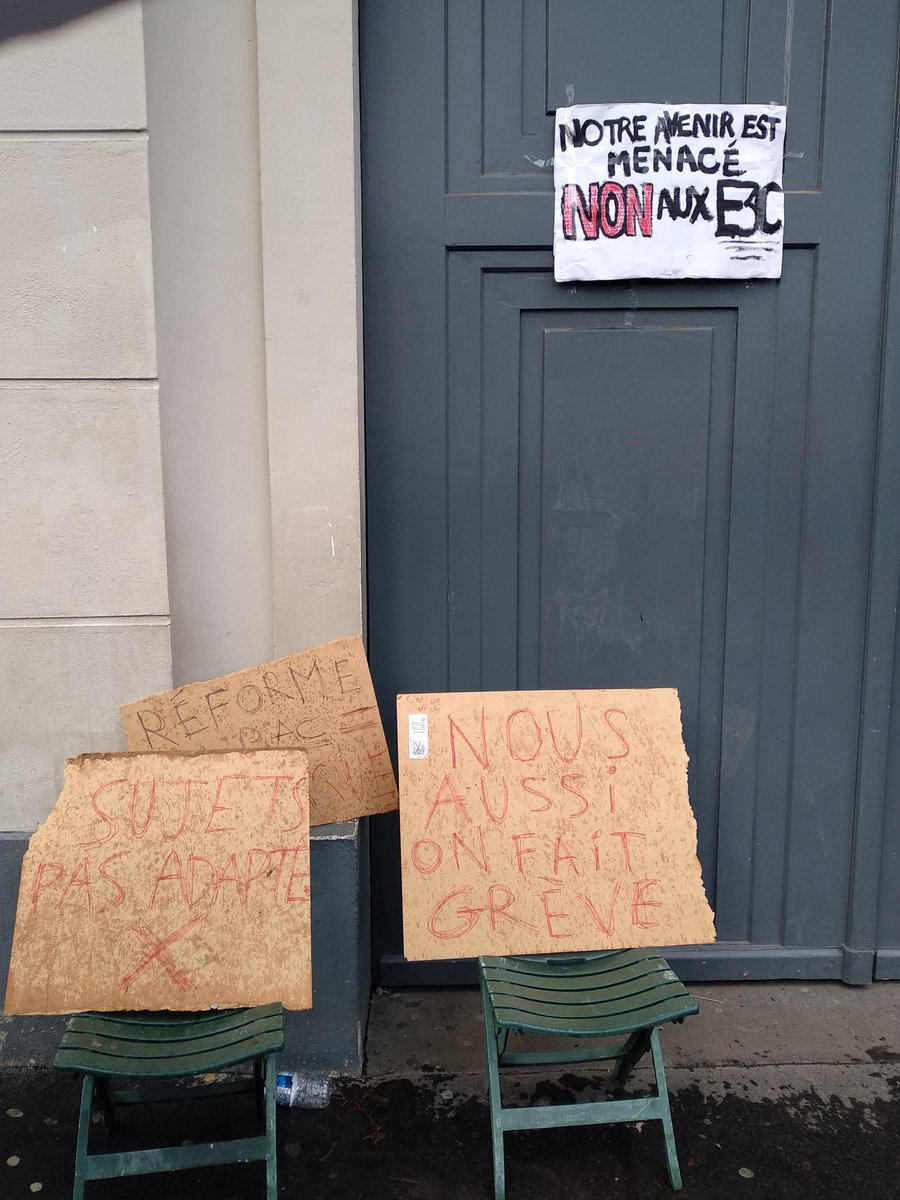 NOTRE AVENIR EST
MENACÉ
NON AUX E3C
RÉFORME
BAC =
SUJETS
PAS ADAPTÉS
X
NOUS
AUSSI
ON FAIT
GRÈVE